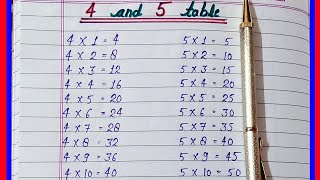 4 and 5 table
4 × 1 = 4
4 × 2 = 8
4 × 3 = 12
4 × 4 = 16
4 × 5 = 20
4 × 6 = 24
4 × 7 = 28
4 × 8 = 32
4 × 9 = 36
4 × 10 = 40
5 × 1 = 5
5 × 2 = 10
5 × 3 = 15
5 × 4 = 20
5 × 5 = 25
5 × 6 = 30
5 × 7 = 35
5 × 8 = 40
5 × 9 = 45
5 × 10 = 50